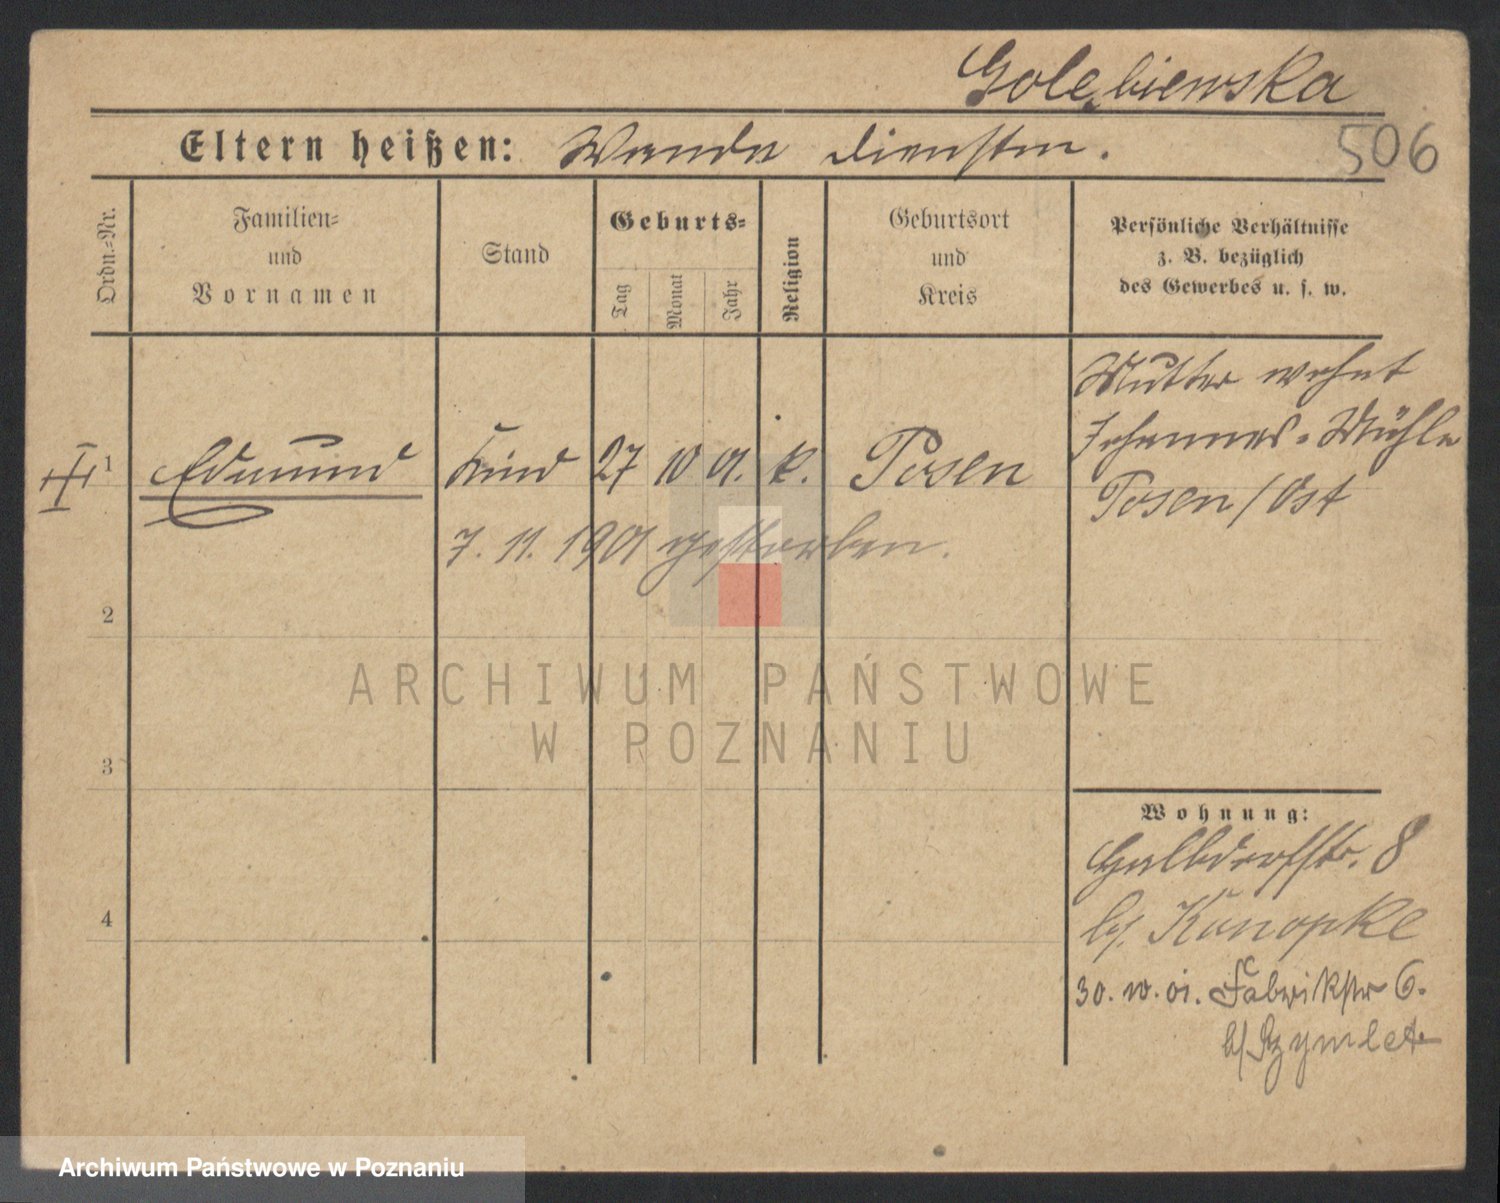 Golębiewska
Eltern heißen: Wanda Dienstm.
506
Ordn.=Nr.
Familien=
und
Vornamen
Stand
Geburts=
Tag
Monat
Jahr
Religion
Geburtsort
und
Kreis
Persönliche Verhältnisse
z. B. bezüglich
des Gewerbes u. s. w.
1 Edmund Kind 27 10 01. k. Posen
7. 11. 1901 gestorben.
Mutter wohnt
Johannes-Mühle
Posen/Ost
2
3
4
Wohnung:
Halbdorfstr. 8
b/. Konopke
30. 10. 01. Fabrikstr 6.
ARCHIWUM PAŃSTWOWE
W POZNANIU
Archiwum Państwowe w Poznaniu